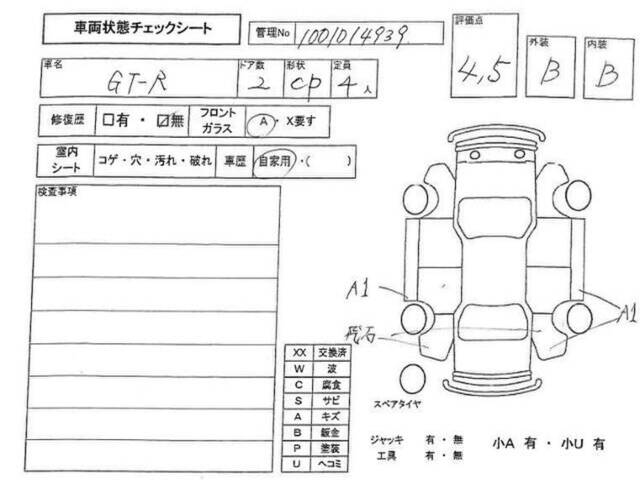 車両状態チェックシート
管理No 1001014939
評価点 4,5
外装 B
内装 B
車名 GT-R
ドア数 2
形状 CP
定員 4人
修復歴 □有・☑無
フロントガラス A・X要す
室内シート コゲ・穴・汚れ・破れ
車歴 自家用・( )
検査事項
A1
A1
飛石
XX 交換済
W 波
C 腐食
S サビ
A キズ
B 鈑金
P 塗装
U ヘコミ
スペアタイヤ
ジャッキ 有・無
工具 有・無
小A 有・小U 有